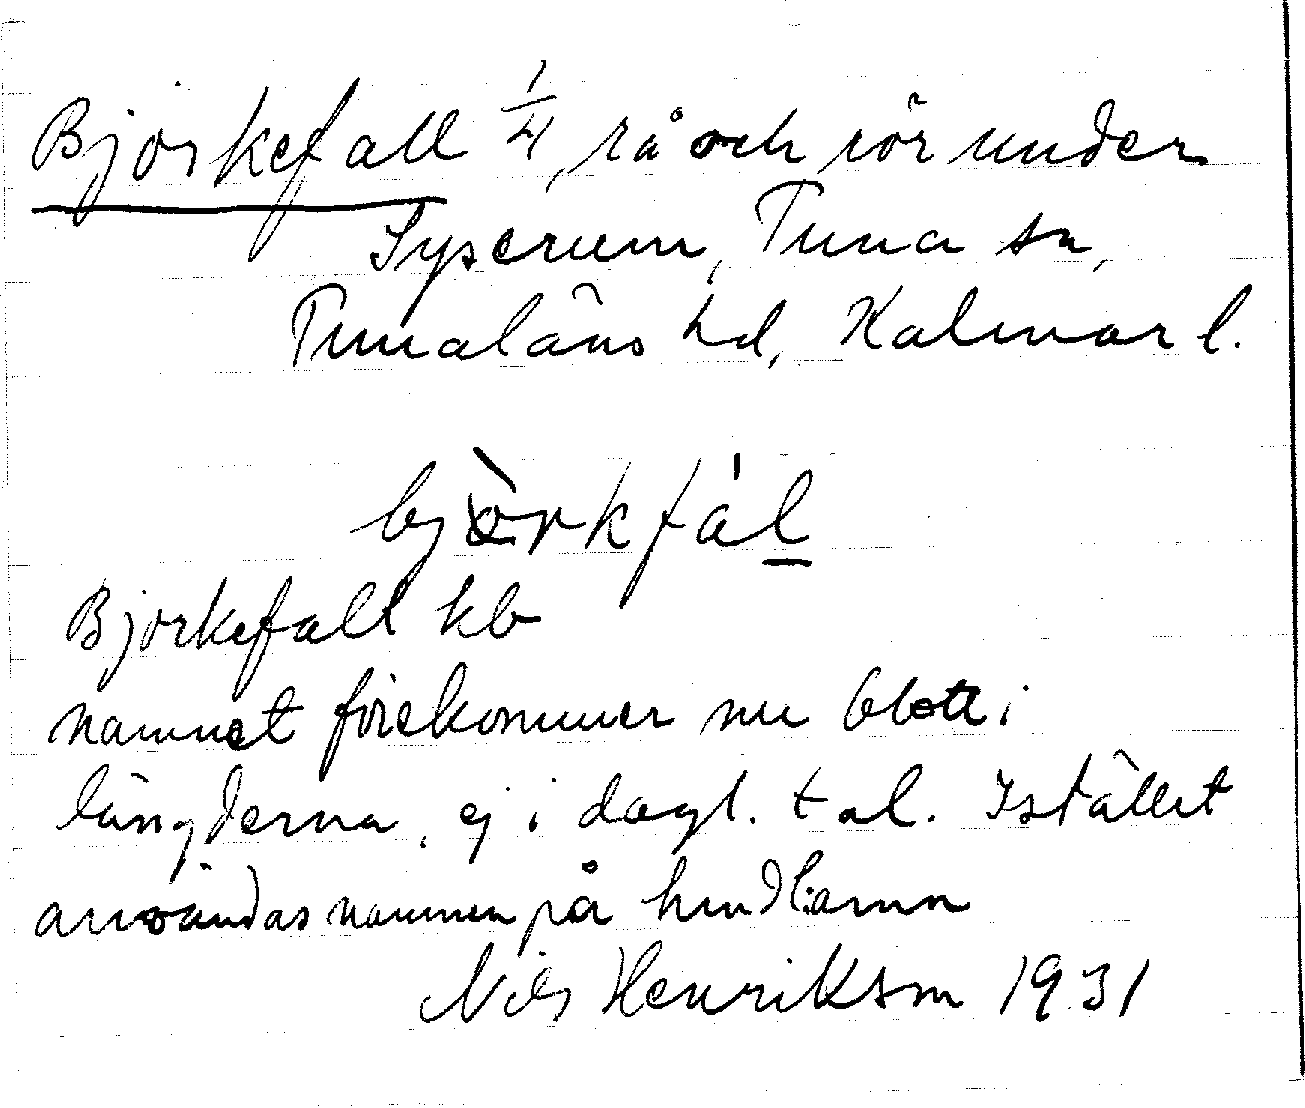 Björkefall 1/4, rå och rör under
Syserum, Tuna sn,
Tunaläns hd, Kalmar l.
bjòrkfál
Björkefall kb
namnet förekommer nu blott i
längderna, ej i dagl. tal. Istället
användas namnen på
Nils Henrikson 1931